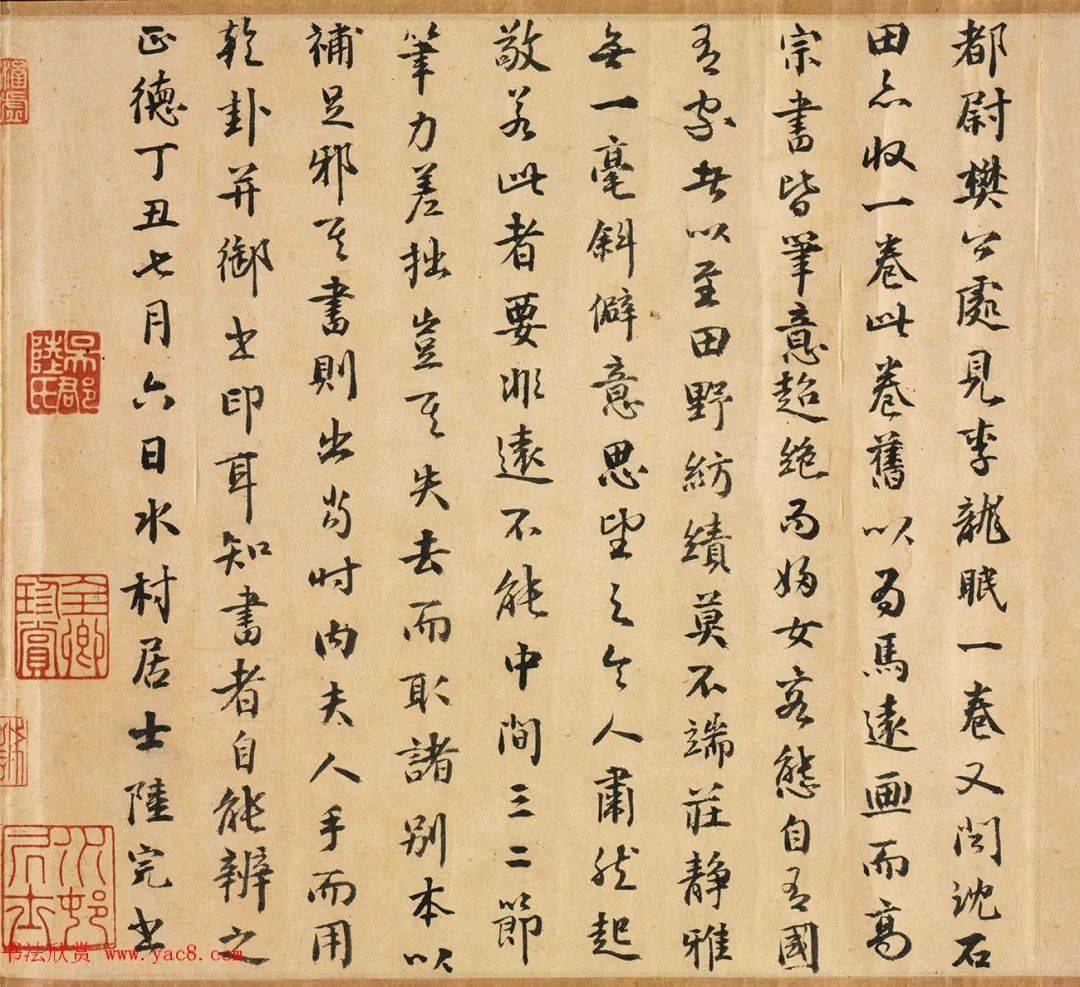 都尉樊公處見李龍眠一卷又聞沈石
田亦收一卷此卷舊以為馬遠画而高
宗書皆筆意超絶而婦女容態自有國
有家者以至田野紡績莫不端莊静雅
無一毫斜僻意思望之令人肅然起
敬若此者要非遠不能中間三二節
筆力差拙豈其失去而取諸别本以
補足邪其書則出當时内夫人手而用
乾卦并御书印耳知書者自能辨之
正德丁丑七月六日水村居士陸完书
吳郡陸氏
全卿珍賞
水邨居士
书法欣赏 www.yac8.com